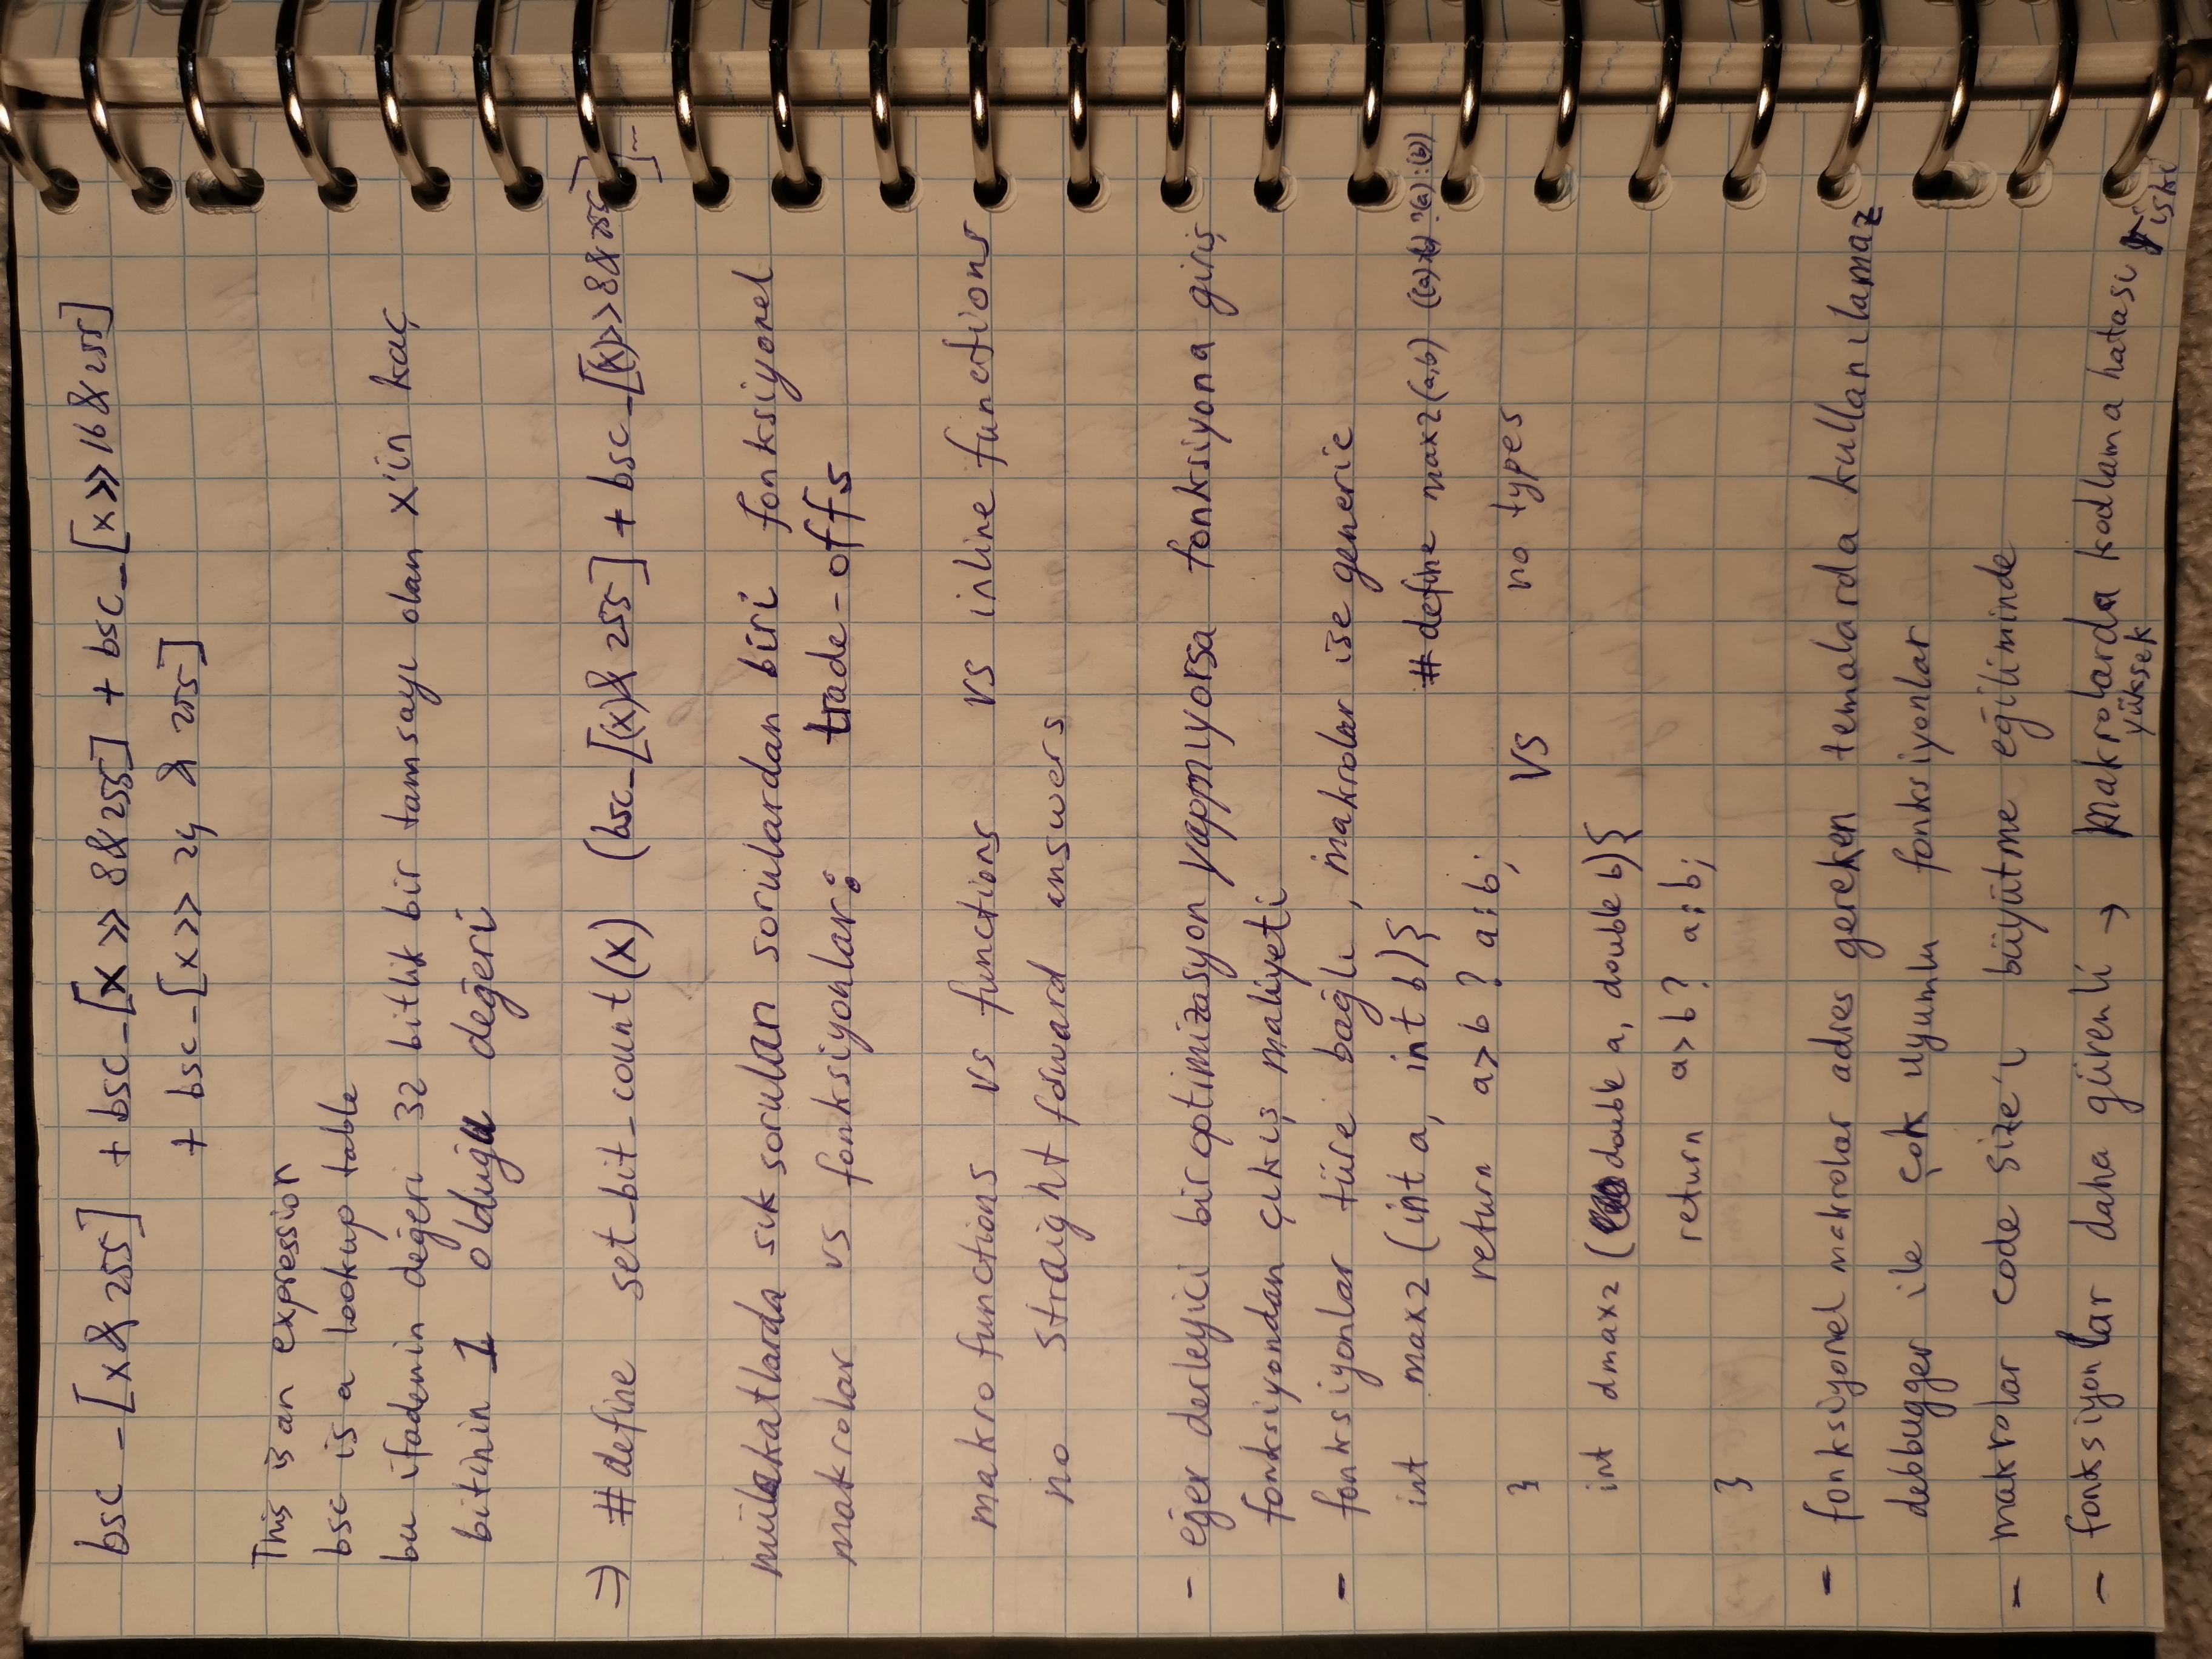 bsc_[x & 255] + bsc_[x >> 8 & 255] + bsc_[x >> 16 & 255]
+ bsc_[x >> 24 & 255]
This is an expression
bsc is a lookup table
bu ifadenin değeri 32 bitlik bir tamsayı olan x'in kaç
bitinin 1 olduğu değeri
⇒ #define set_bit_count(x) (bsc_[(x) & 255] + bsc_[(x)>>8&255]...
mülakatlarda sık sorulan sorulardan biri fonksiyonel
makrolar vs fonksiyonlar: trade-offs
makro functions vs functions vs inline functions
no straight forward answers
- eğer derleyici bir optimizasyon yapmıyorsa fonksiyona giriş
fonksiyondan çıkış maliyeti
- fonksiyonlar türe bağlı, makrolar ise generic
int max2 (int a, int b){
return a>b ? a:b;
}
#define max2(a,b) ((a)>(b) ?(a):(b))
vs no types
int dmax2 (double a, double b){
return a>b? a:b;
}
- fonksiyonel makrolar adres gereken temalarda kullanılamaz
debbugger ile çok uyumlu fonksiyonlar
- makrolar code size'ı büyütme eğiliminde
- fonksiyonlar daha güvenli → Makrolarda kodlama hatası riski
yüksek